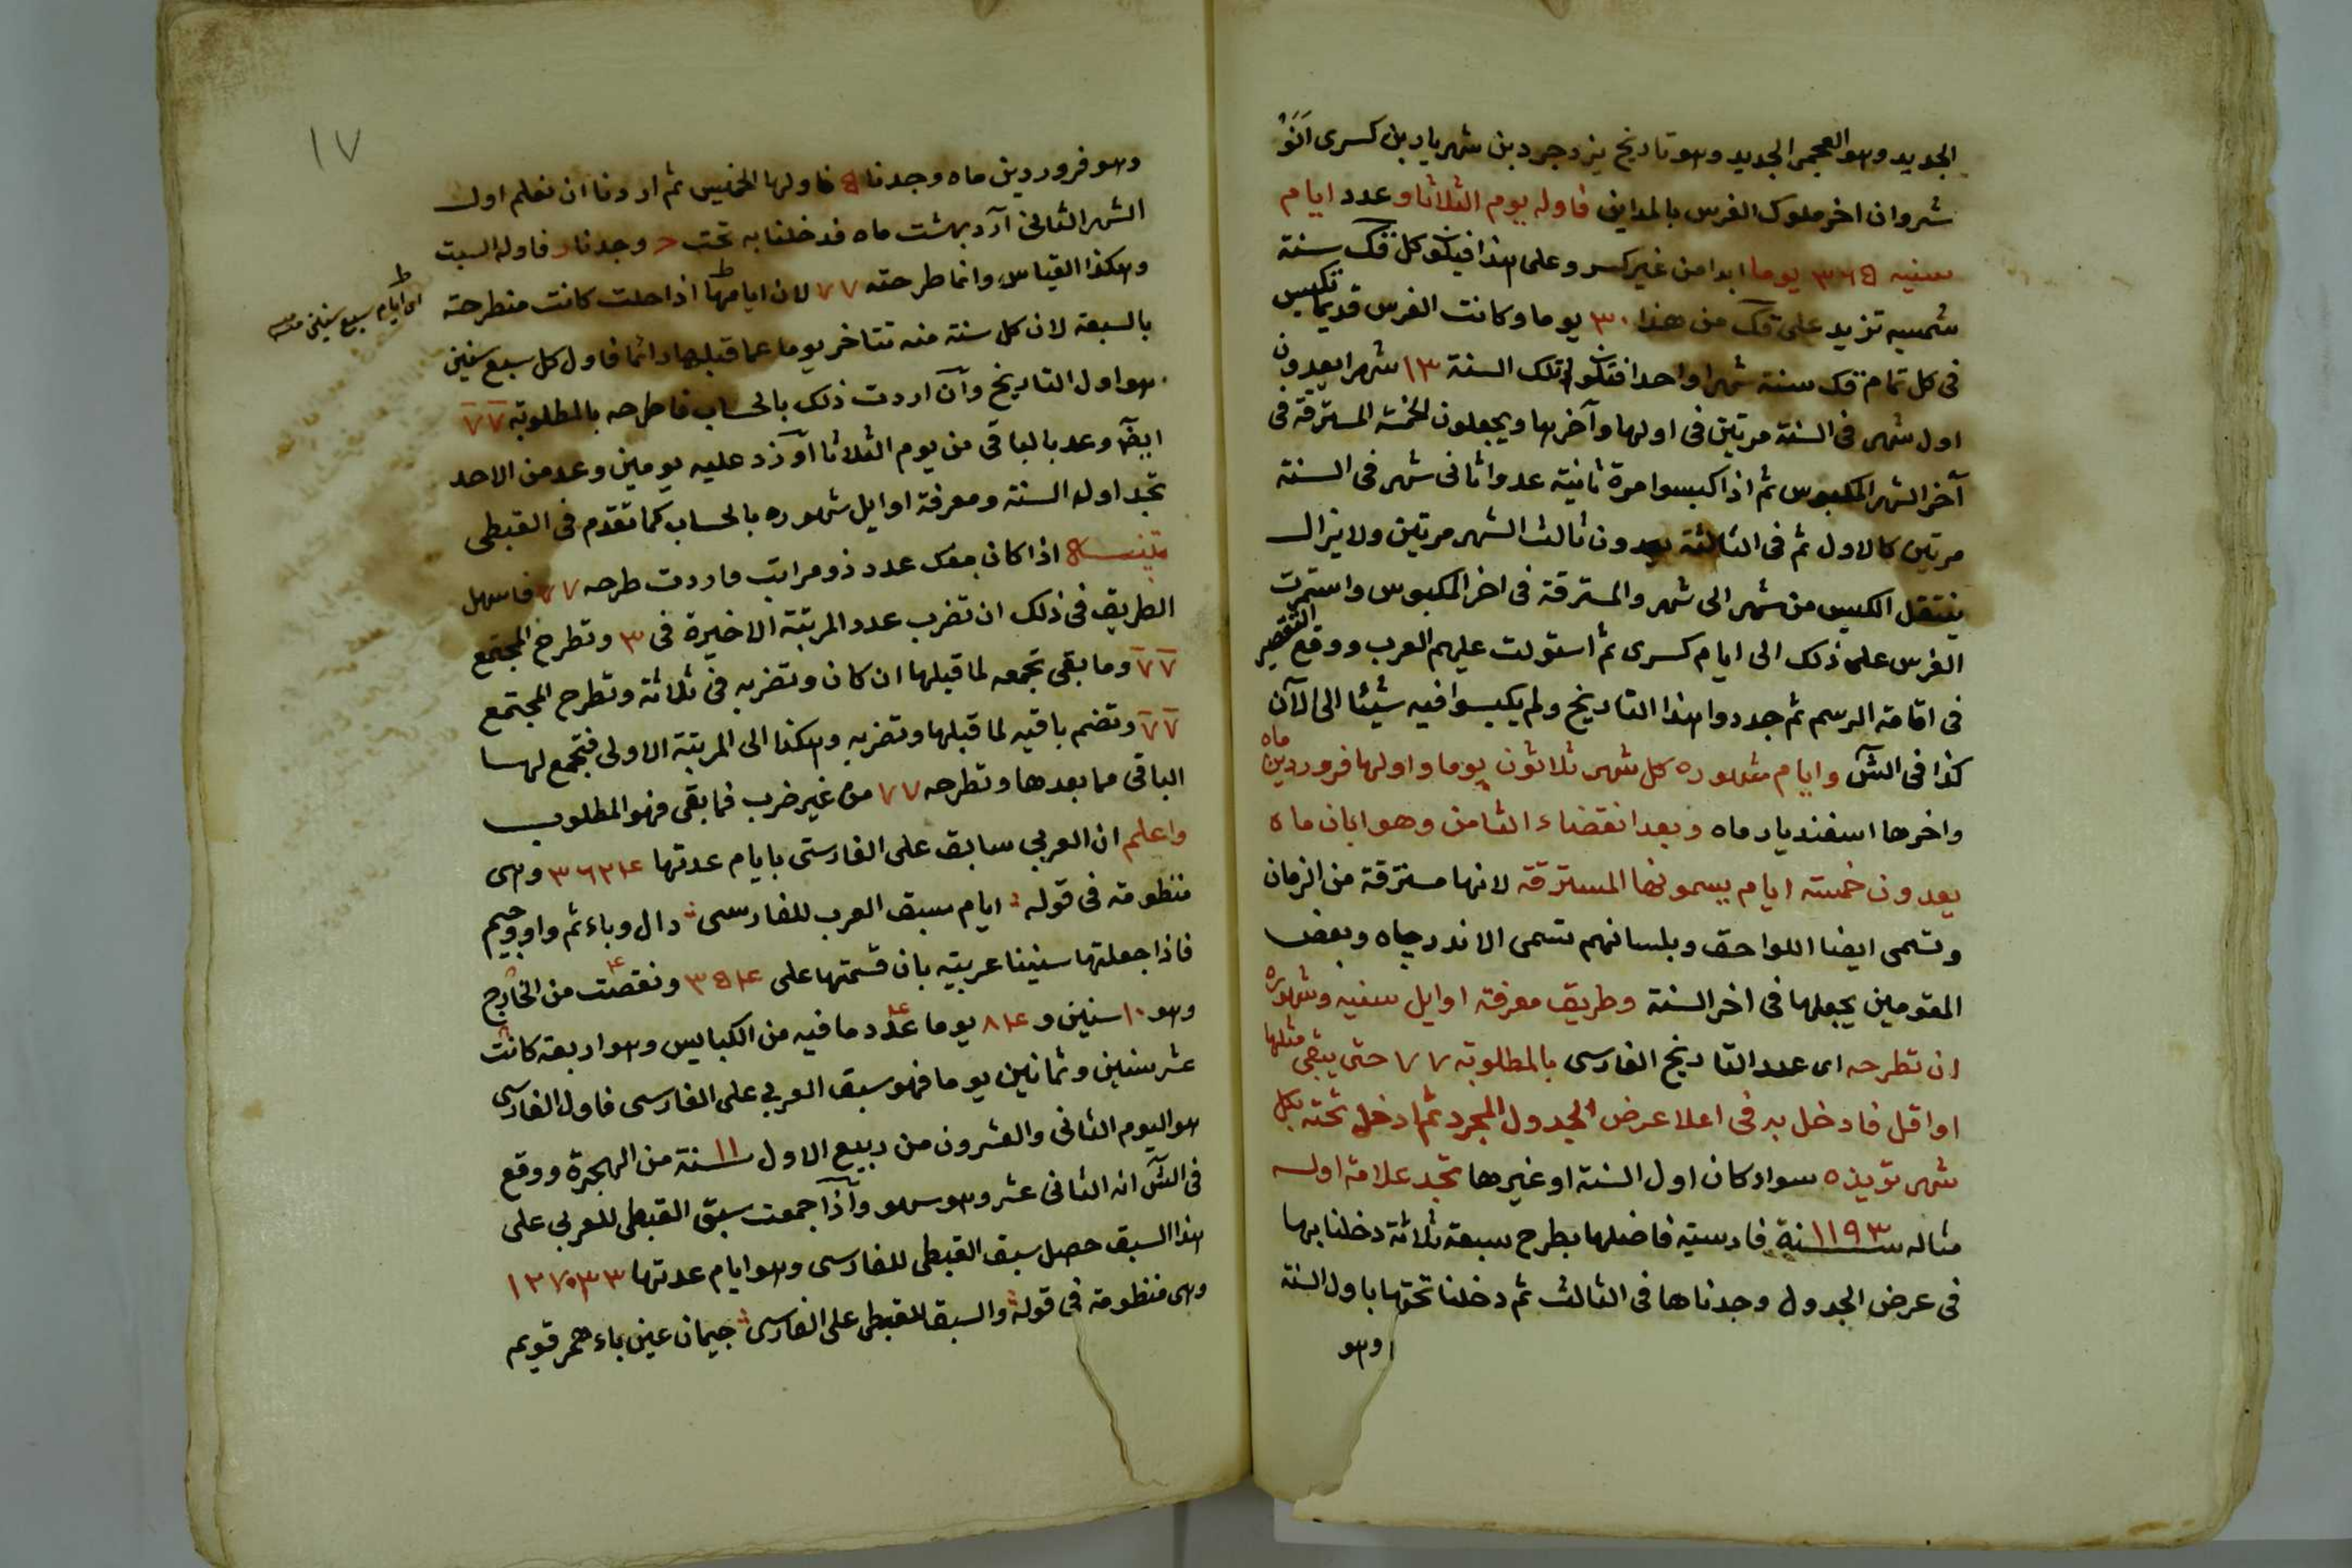 الجديد وهو العجمى الجديد وهو تاريخ يزدجرد بن شهريار بن كسرى انو
شروان اخر ملوك الفرس بالمداين فاوله يوم الثلاثا وعدد ايام
سنيه ٣٦٥ يوما ابدا من غير كسر وعلى هذا فيكون كل قك سنة
شمسيه تزيد على قك من هذا ٣٠ يوما وكانت الفرس قديما تكبس
فى كل تمام قك سنة شهرا واحدا فتكون تلك السنة ١٣ شهرا يعدون
اول شهر فى السنة مرتين فى اولها وآخرها ويجعلون الخمسة المسترقة فى
آخر الشهر المكبوس ثم اذا كبسوا مرة ثانية عدوا ثانى شهر فى السنة
مرتين كالاول ثم فى الثالثة يعدون ثالث الشهر مرتين ولا يزال
ينتقل الكبس من شهر الى شهر والمسترقة فى اخر المكبوس واستمرت
الفرس على ذلك الى ايام كسرى ثم استولت عليهم العرب ووقع التقصير
فى اقامة الرسم ثم جددوا هذا التاريخ ولم يكبسوا فيه شيئا الى الآن
كذا فى الش وايام شهوره كل شهر ثلاثون يوما واولها فروردين ماه
واخرها اسفنديار ماه وبعد انقضاء الثامن وهو ابان ماه
يعدون خمسة ايام يسمونها المسترقة لانها مسترقة من الزمان
وتسمى ايضا اللواحق وبلسانهم تسمى الاندرجاه وبعض
المقومين يجعلها فى اخر السنة وطريق معرفة اوايل سنيه وشهوره
ان تطرحه اى عدد التاريخ الفارسى بالمطلوبة ٧٧ حتى يبقى مثلها
او اقل فادخل به فى اعلا عرض الجدول المجرد ثم ادخل تحته بكل
شهر تريده سواء كان اول السنة او غيرها تجد علامة اوله
مثاله سنة ١١٩٣ فارسية فاضلها بطرح سبعة ثلاثة دخلنا بها
فى عرض الجدول وجدناها فى الثالث ثم دخلنا تحتها باول السنة
وهو
١٧
وهو فروردين ماه وجدنا ٥ فاولها الخميس ثم اردنا ان نعلم اول
الشهر الثانى آرد بهشت ماه فدخلنا به تحت ج وجدنا فاوله السبت
وهكذا القياس وانما طرحته ٧٧ لان ايامها اذا حلت كانت منطرحة
اى ايام سبع سنين
بالسبعة لان كل سنة منه تتاخر يوما عما قبلها دائما فاول كل سبع سنين
هو اول التاريخ وان اردت ذلك بالحساب فاطرحه بالمطلوبة ٧٧
ايضا وعد بالباقى من يوم الثلاثا او زد عليه يومين وعد من الاحد
تجد اول السنة ومعرفة اوايل شهوره بالحساب كما تقدم فى القبطى
تنبيه اذا كان معك عدد ذو مراتب واردت طرحه ٧٧ فاسهل
الطريق فى ذلك ان تضرب عدد المرتبة الاخيرة فى ٣ وتطرح المجتمع
٧٧ وما بقى تجمعه لما قبلها ان كان وتضربه فى ثلاثة وتطرح المجتمع
٧٧ وتضم باقيه لما قبلها وتضربه وهكذا الى المرتبة الاولى فتجمع لها
الباقى مما بعدها وتطرحه ٧٧ من غير ضرب فما بقى فهو المطلوب
واعلم ان العربى سابق على الفارسى بايام عدتها ٣٦٢٤ وهى
منظومة فى قوله ايام سبق العرب للفارسى دال وباء ثم واو وجيم
فاذا جعلتها سنينا عربية بان قسمتها على ٣٥٤ ونقصت من الخارج
وهو ١٠ سنين و ٨٤ يوما عدد ما فيه من الكبايس وهو اربعة كانت
عشر سنين وثمانين يوما فهو سبق العربى على الفارسى فاول الفارسى
هو اليوم الثانى والعشرون من ربيع الاول سنة ١١ من الهجرة ووقع
فى الش انه الثانى عشر وهو سهو واذا جمعت سبق القبطى للعربى على
هذا السبق حصل سبق القبطى للفارسى وهو ايام عدتها
وهى منظومة فى قوله والسبق للقبطى على الفارسى جيمان عين باء قويم